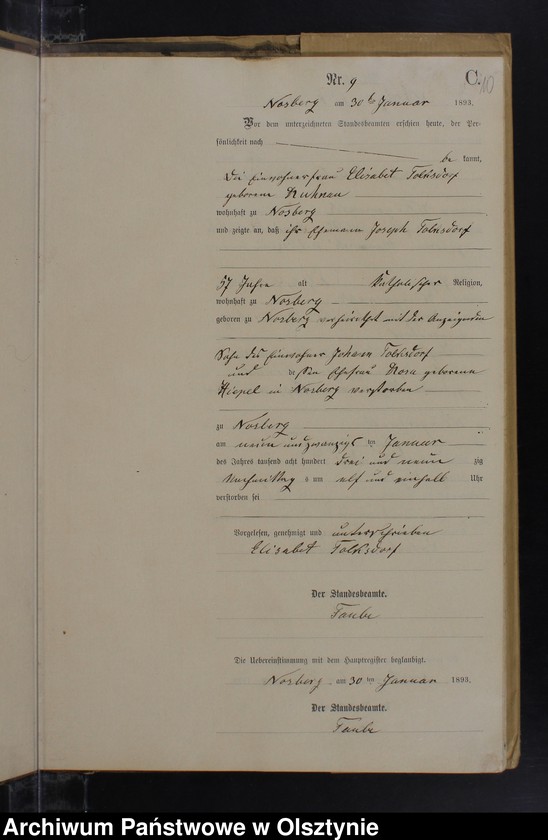 Nr. 9 C. 10
Nosberg am 30 ten Januar 1893.
Vor dem unterzeichneten Standesbeamten erschien heute, der Per-
sönlichkeit nach
be kannt,
die Einwohnerfrau Elisabet Tolksdorf
geborene Kuhnau
wohnhaft zu Nosberg
und zeigte an, daß ihr Ehemann Joseph Tolksdorf
57 Jahre alt Katholischer Religion,
wohnhaft zu Nosberg
geboren zu Nosberg verheirathet mit der Anzeigenden
Sohn des Einwohner Johann Tolksdorf
und dessen Ehefrau Rosa geborene
in Nosberg verstorben
zu Nosberg
am neun und zwanzigs ten Januar
des Jahres tausend acht hundert drei und neun zig
Nachmittags um elf und einhalb Uhr
verstorben sei
Vorgelesen, genehmigt und unterschrieben
Elisabet Tolksdorf
Der Standesbeamte.
Taube
Die Uebereinstimmung mit dem Hauptregister beglaubigt.
Nosberg am 30 ten Januar 1893.
Der Standesbeamte.
Taube
Archiwum Państwowe w Olsztynie